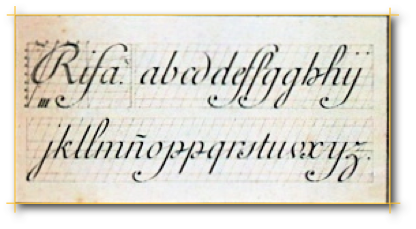 Risa. abcddeſſgghhij
jkllmñoppqrstuvxyz.